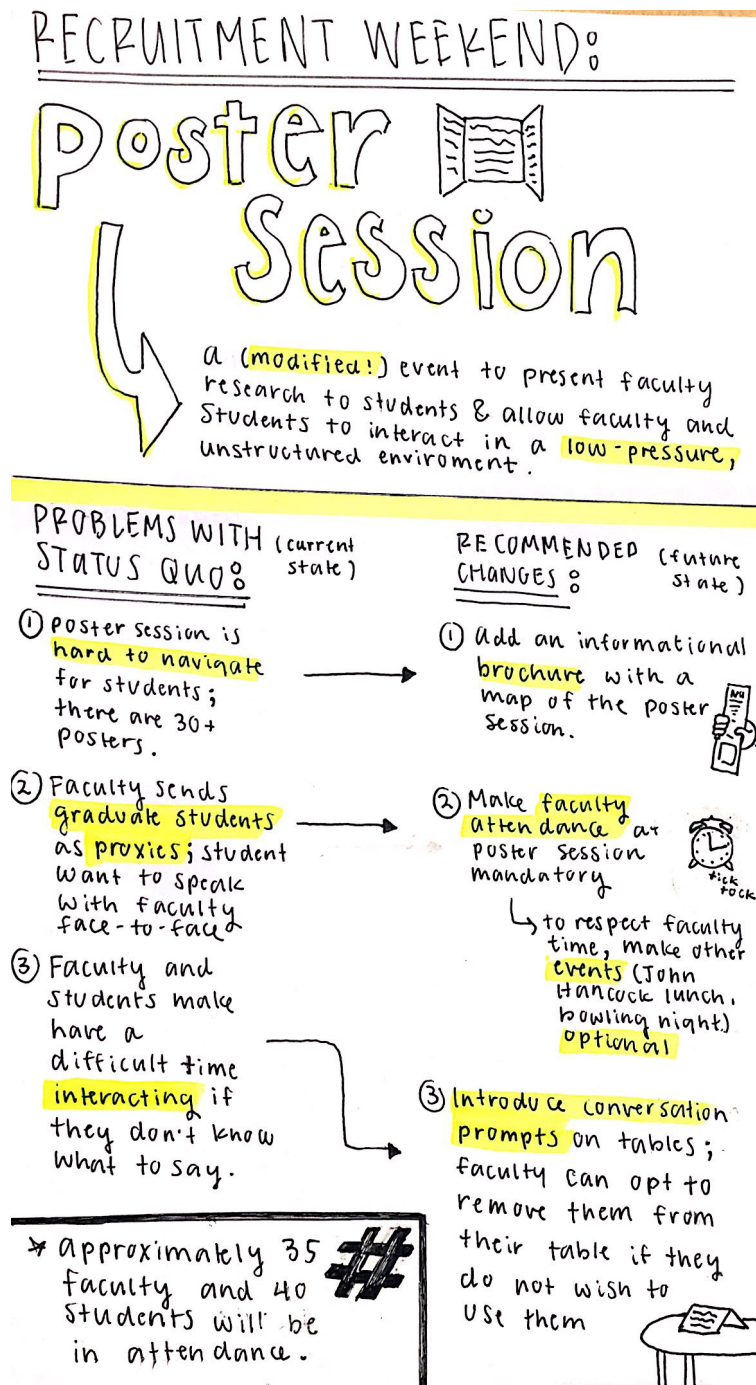 RECRUITMENT WEEKEND:
poster
session
a (modified!) event to present faculty
research to students & allow faculty and
students to interact in a low-pressure,
unstructured enviroment.
PROBLEMS WITH (current
STATUS QUO: state)
① poster session is
hard to navigate
for students;
there are 30+
posters.
② Faculty sends
graduate students
as proxies; student
want to speak
with faculty
face-to-face
③ Faculty and
students make
have a
difficult time
interacting if
they don't know
what to say.
* approximately 35
faculty and 40
students will be
in attendance.
#
RECOMMENDED (future
CHANGES: state)
① add an informational
brochure with a
map of the poster
session.
② Make faculty
attendance at
poster session
mandatory
tick
tock
to respect faculty
time, make other
events (John
Hancock lunch,
bowling night)
optional
③ Introduce conversation
prompts on tables;
faculty can opt to
remove them from
their table if they
do not wish to
use them